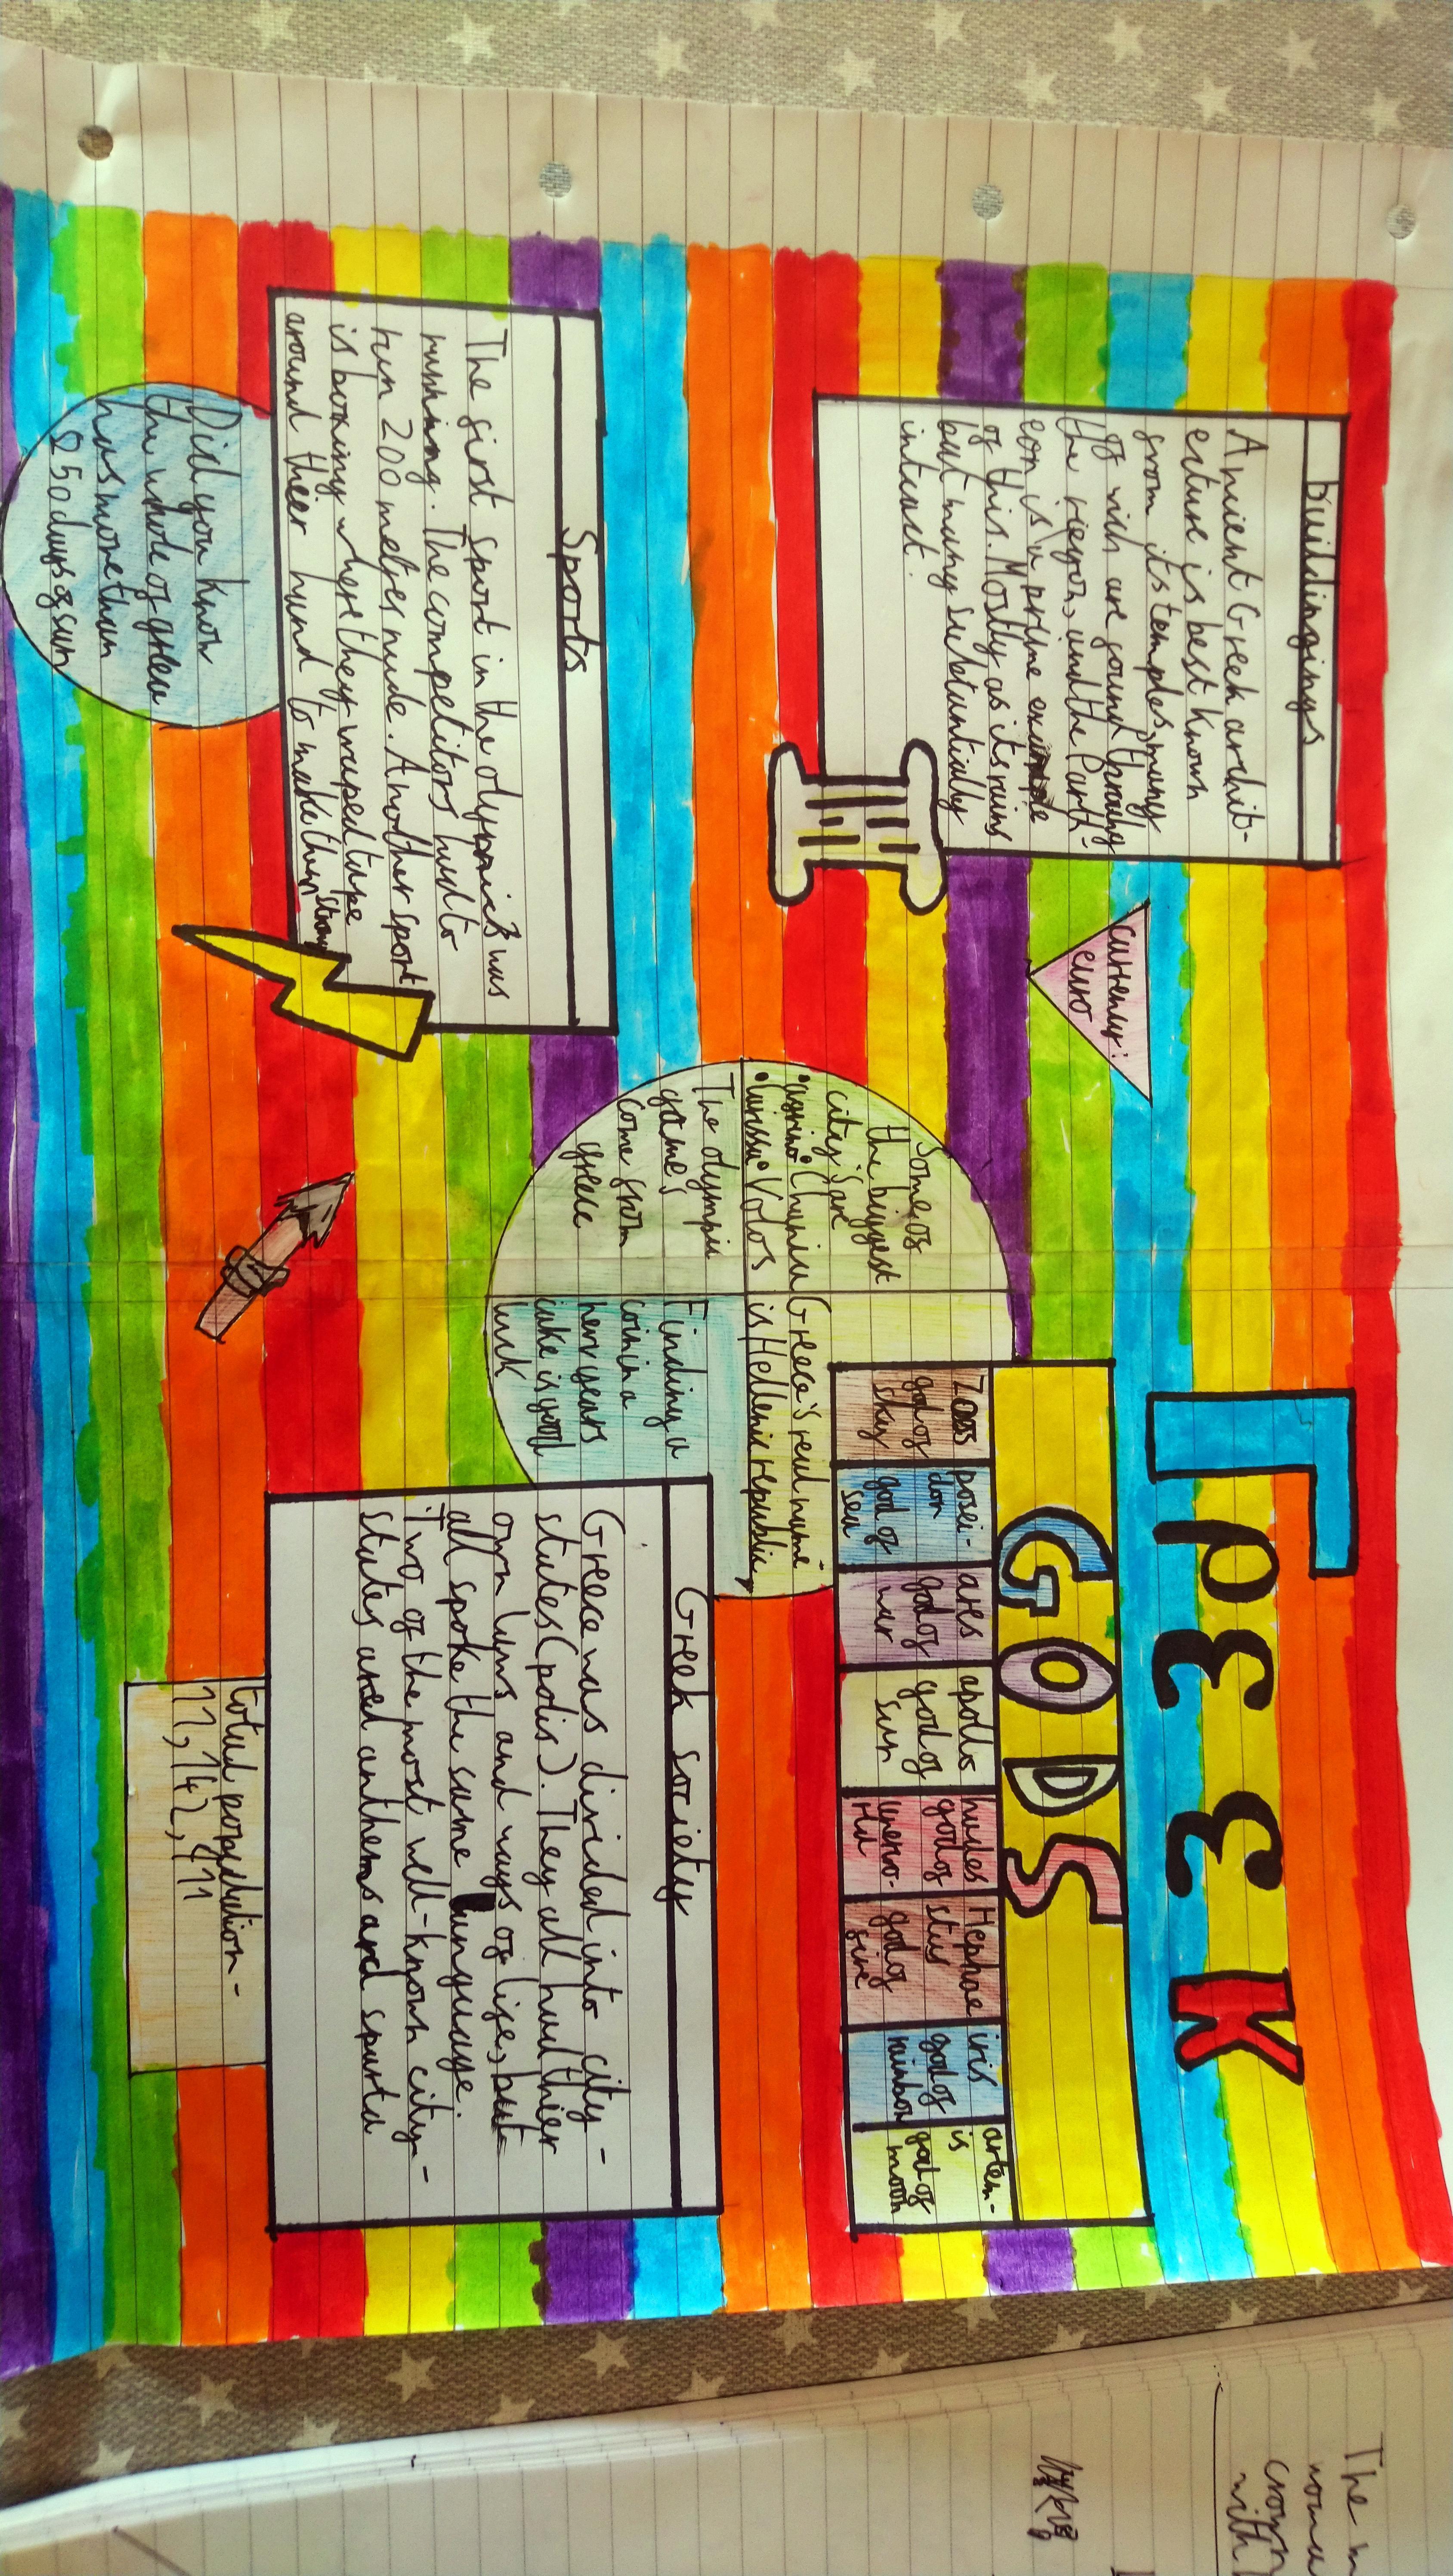 ΓΡΕΕΚ
buildingings
Ancient Greek archit-
ecture is best known
from its temples, many
of wich are found throug
the reigon, and the Parth-
eon is a prime example
of this. Mostly as its ruins
but many substantially
intcast.
currency:
euro
GODS
Zeus
god of
sky
posei-
don
god of
sea
ares
god of
war
apollo
god of
sun
hades
god of
undero-
rld
Hephae
stus
god of
fire
iris
god of
rainbow
artem-
is
god of
moon
Some of
the biggest
city's are
•agrino •Chania
•larissa •Volos
Greece's real name
is Hellenic republic
The olympic
game's
come from
greece
Finding a
coin in a
new years
cake is good
luck
Sports
The first sport in the olympics was
running. The competitors had to
run 200 metres nude. Another sport
is boxing where they wraped tape
around theer hand to make them strong
Did you know
the whole of greece
has more than
250 days of sun
Greek society
Greece was divided into city-
states (polis). They all had thier
own laws and ways of life, but
all spoke the same language.
Two of the most well-known city-
states ared anthens and sparta
total population-
11,142,111
The
with